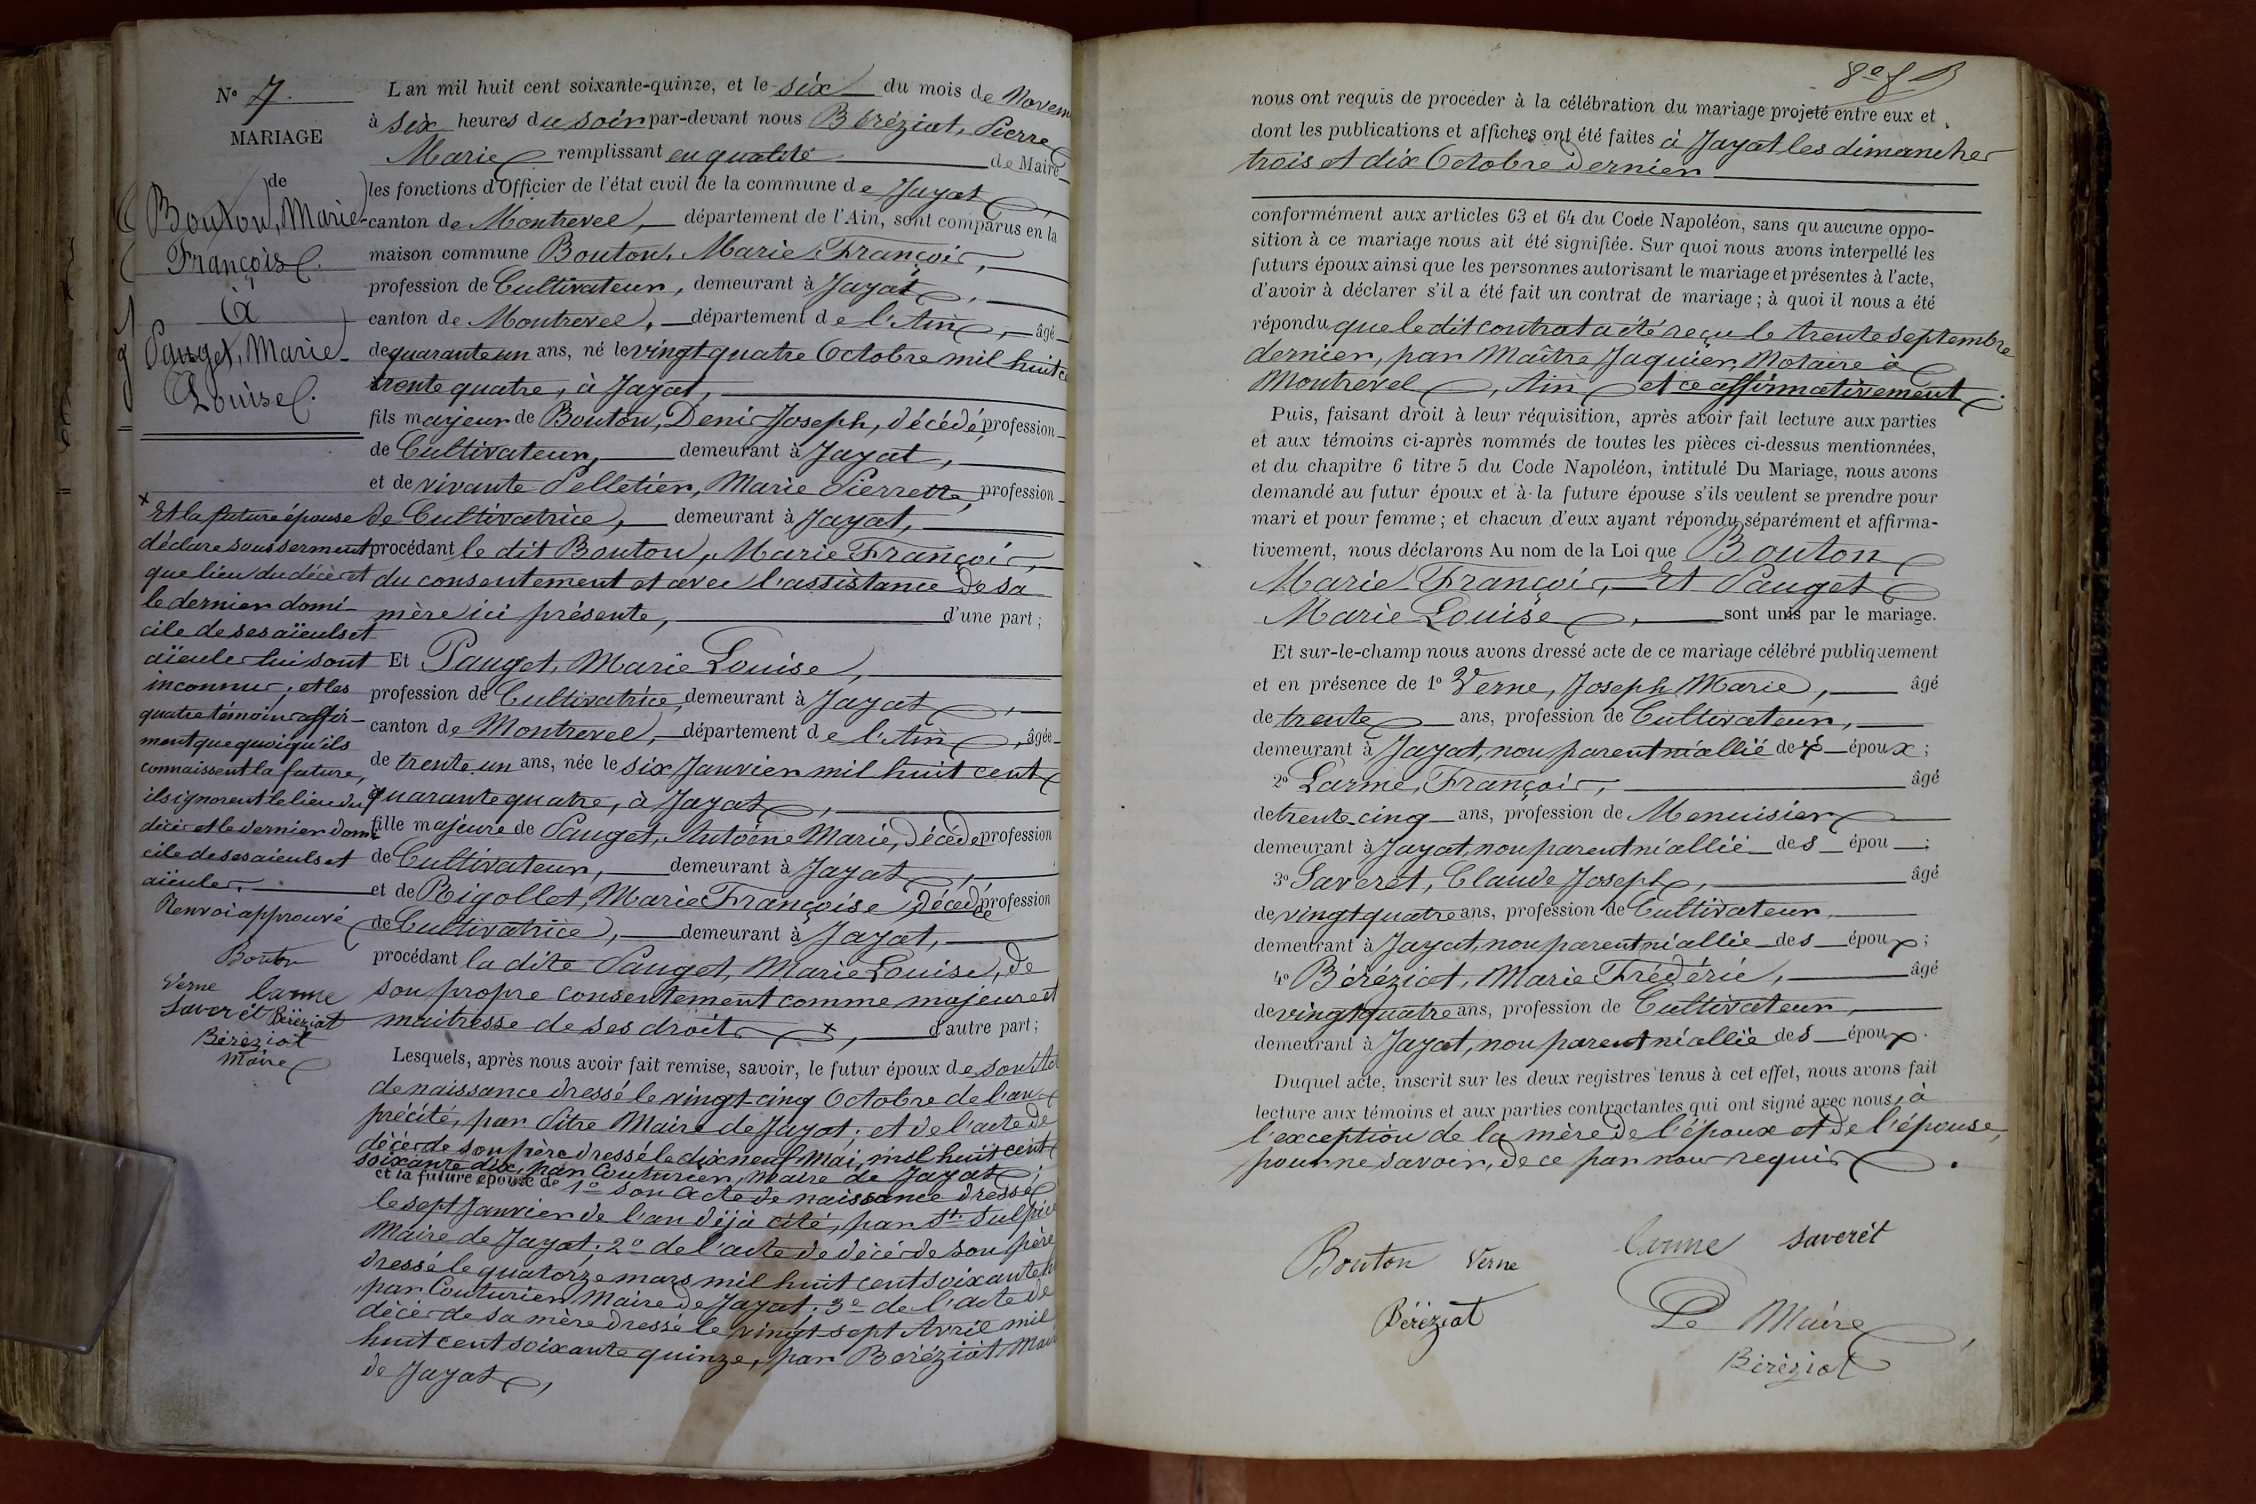 N° 7.
MARIAGE
de
Bouton, Marie
François.
à
Pauget, Marie
Louise.
L'an mil huit cent soixante-quinze, et le six du mois de Novem
à six heures du soir par-devant nous Béréziat, Pierre
Marie remplissant en qualité de Maire
les fonctions d'Officier de l'état civil de la commune de Jayat
canton de Montrevel, département de l'Ain, sont comparus en la
maison commune Bouton, Marie François,
profession de Cultivateur, demeurant à Jayat,
canton de Montrevel, département de l'Ain, âgé
de quarante un ans, né le vingt quatre Octobre mil huit c
trente quatre, à Jayat,
fils majeur de Bouton, Denis Joseph, décédé, profession
de Cultivateur, demeurant à Jayat,
et de vivante Pelletier, Marie Pierrette, profession
de Cultivatrice, demeurant à Jayat,
procédant le dit Bouton, Marie François,
du consentement et avec l'assistance de sa
mère ici présente, d'une part;
Et Pauget, Marie Louise,
profession de Cultivatrice, demeurant à Jayat,
canton de Montrevel, département de l'Ain, âgée
de trente un ans, née le six Janvier mil huit cent
quarante quatre, à Jayat,
fille majeure de Pauget, Antoine Marie, décédé, profession
de Cultivateur, demeurant à Jayat,
et de Rigollet, Marie Françoise, décédée, profession
de Cultivatrice, demeurant à Jayat,
procédant la dite Pauget, Marie Louise, de
son propre consentement comme majeure et
maitresse de ses droits x, d'autre part;
Lesquels, après nous avoir fait remise, savoir, le futur époux de son Act
de naissance dressé le vingt-cinq Octobre de l'an
précité, par Pitre Maire de Jayat; et de l'acte de
décès de son père dressé le dix neuf Mai, mil huit cent
soixante dix, par Couturier, Maire de Jayat;
et la future épouse de 1° son acte de naissance dressé
le sept Janvier de l'an déjà cité, par St. Sulpice
Maire de Jayat; 2° de l'acte de décès de son père
dressé le quatorze mars mil huit cent soixante h
par Couturier Maire de Jayat; 3° de l'acte de
décès de sa mère dressé le vingt-sept Avril mil
huit cent soixante quinze, par Béréziat Mai
de Jayat,
x Et la future épouse
déclare sous serment
que lieu du décès et
le dernier domi-
cile de ses aïeuls et
aïeules lui sont
inconnus; et les
quatre témoins affir-
ment que quoiqu'ils
connaissent la future,
ils ignorent le lieu du
décès et le dernier domi
cile de ses aïeuls et
aïeules.
Renvoi approuvé
Bouton
Verne Larme
Saverét Béréziat
Béréziat
Maire
8e f B
nous ont requis de procéder à la célébration du mariage projeté entre eux et
dont les publications et affiches ont été faites à Jayat les dimanches
trois et dix Octobre dernier
conformément aux articles 63 et 64 du Code Napoléon, sans qu'aucune oppo-
sition à ce mariage nous ait été signifiée. Sur quoi nous avons interpellé les
futurs époux ainsi que les personnes autorisant le mariage et présentes à l'acte,
d'avoir à déclarer s'il a été fait un contrat de mariage; à quoi il nous a été
répondu que le dit contrat a été reçu le trente septembre
dernier, par Maître Jaquier, Notaire à
Montrevel, Ain et ce affirmativement.
Puis, faisant droit à leur réquisition, après avoir fait lecture aux parties
et aux témoins ci-après nommés de toutes les pièces ci-dessus mentionnées,
et du chapitre 6 titre 5 du Code Napoléon, intitulé Du Mariage, nous avons
demandé au futur époux et à la future épouse s'ils veulent se prendre pour
mari et pour femme; et chacun d'eux ayant répondu séparément et affirma-
tivement, nous déclarons Au nom de la Loi que Bouton
Marie François, Et Pauget
Marie Louise, sont unis par le mariage.
Et sur-le-champ nous avons dressé acte de ce mariage célébré publiquement
et en présence de 1° Verne, Joseph Marie, âgé
de trente ans, profession de Cultivateur,
demeurant à Jayat, non parent ni allié des époux;
2° Larme, François, âgé
de trente-cinq ans, profession de Menuisier
demeurant à Jayat, non parent ni allié des épou ;
3° Saveret, Claude Joseph, âgé
de vingt quatre ans, profession de Cultivateur
demeurant à Jayat, non parent ni allié des époux;
4° Béréziat, Marie Frédéric, âgé
de vingt quatre ans, profession de Cultivateur,
demeurant à Jayat, non parent ni allié des époux.
Duquel acte, inscrit sur les deux registres tenus à cet effet, nous avons fait
lecture aux témoins et aux parties contractantes qui ont signé avec nous, à
l'exception de la mère de l'époux et de l'épouse,
pour ne savoir, de ce par nous requis.
Bouton Verne Larme Saverét
Béréziat Le Maire
Béréziat